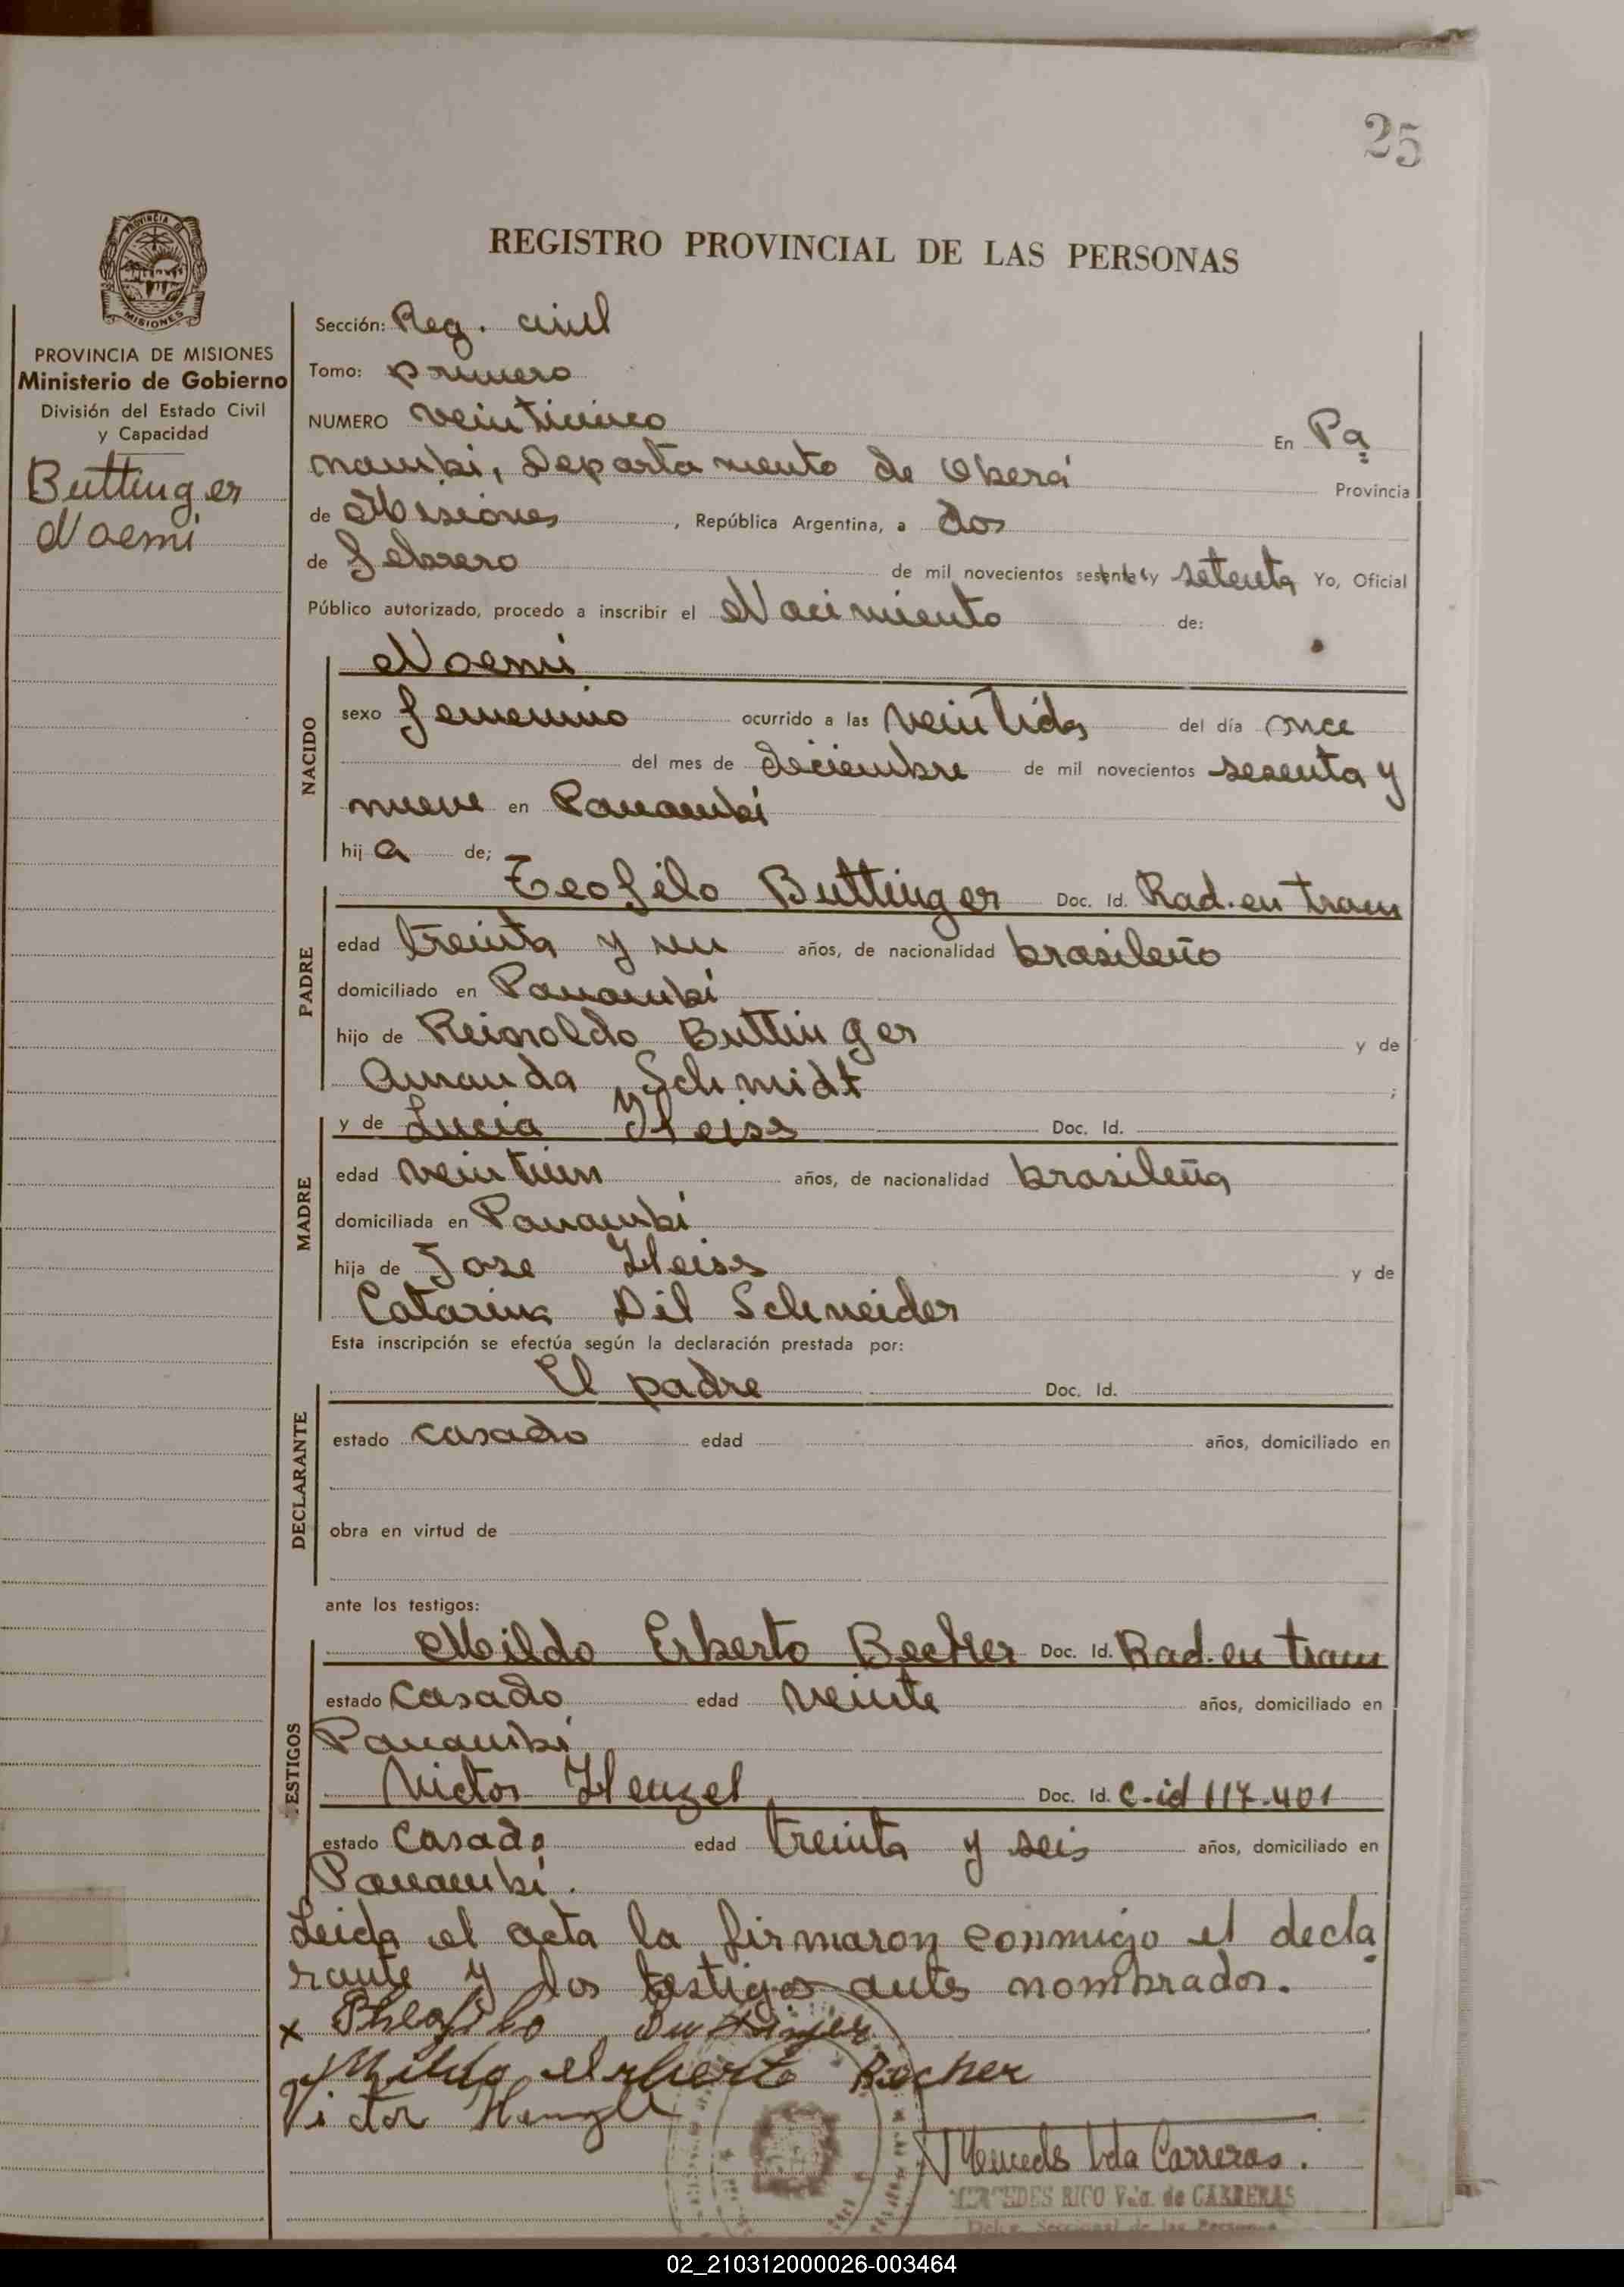 25
PROVINCIA DE
MISIONES
REGISTRO PROVINCIAL DE LAS PERSONAS
PROVINCIA DE MISIONES
Ministerio de Gobierno
División del Estado Civil
y Capacidad
Buttinger
Noemi
Sección: Reg. civil
Tomo: primero
NUMERO veinticinco En Pa
nambi, Departamento de Oberá Provincia
de Misiones, República Argentina, a dos
de febrero de mil novecientos sesenta y setenta Yo, Oficial
Público autorizado, procedo a inscribir el Nacimiento de:
NACIDO
Noemi
sexo femenino ocurrido a las veintidos del día once
del mes de diciembre de mil novecientos sesenta y
nueve en Panambí
hija de;
PADRE
Teofilo Buttinger Doc. Id. Rad. en tram
edad treinta y un años, de nacionalidad brasileño
domiciliado en Panambí
hijo de Reinoldo Buttinger y de
Amanda Schmidt ;
MADRE
y de Lucia Heiss Doc. Id.
edad veintiun años, de nacionalidad brasileña
domiciliada en Panambí
hija de Jose Heiss y de
Catarina Dil Schneider
Esta inscripción se efectúa según la declaración prestada por:
DECLARANTE
El padre Doc. Id.
estado casado edad años, domiciliado en
obra en virtud de
ante los testigos:
TESTIGOS
Mildo Erberto Becker Doc. Id. Rad. en tram
estado casado edad veinte años, domiciliado en
Panambi
Victor Henzel Doc. Id. C-id 117.401
estado casado edad treinta y seis años, domiciliado en
Panambí.
Leida el acta la firmaron conmigo el decla
rante y los testigos antes nombrados.
x Theofilo Buttinjer
Mildo Erberto Becker
Victor Henzel
Mercedes Vda Carreras.
MERCEDES RICO Vda. de CARRERAS
02_210312000026-003464